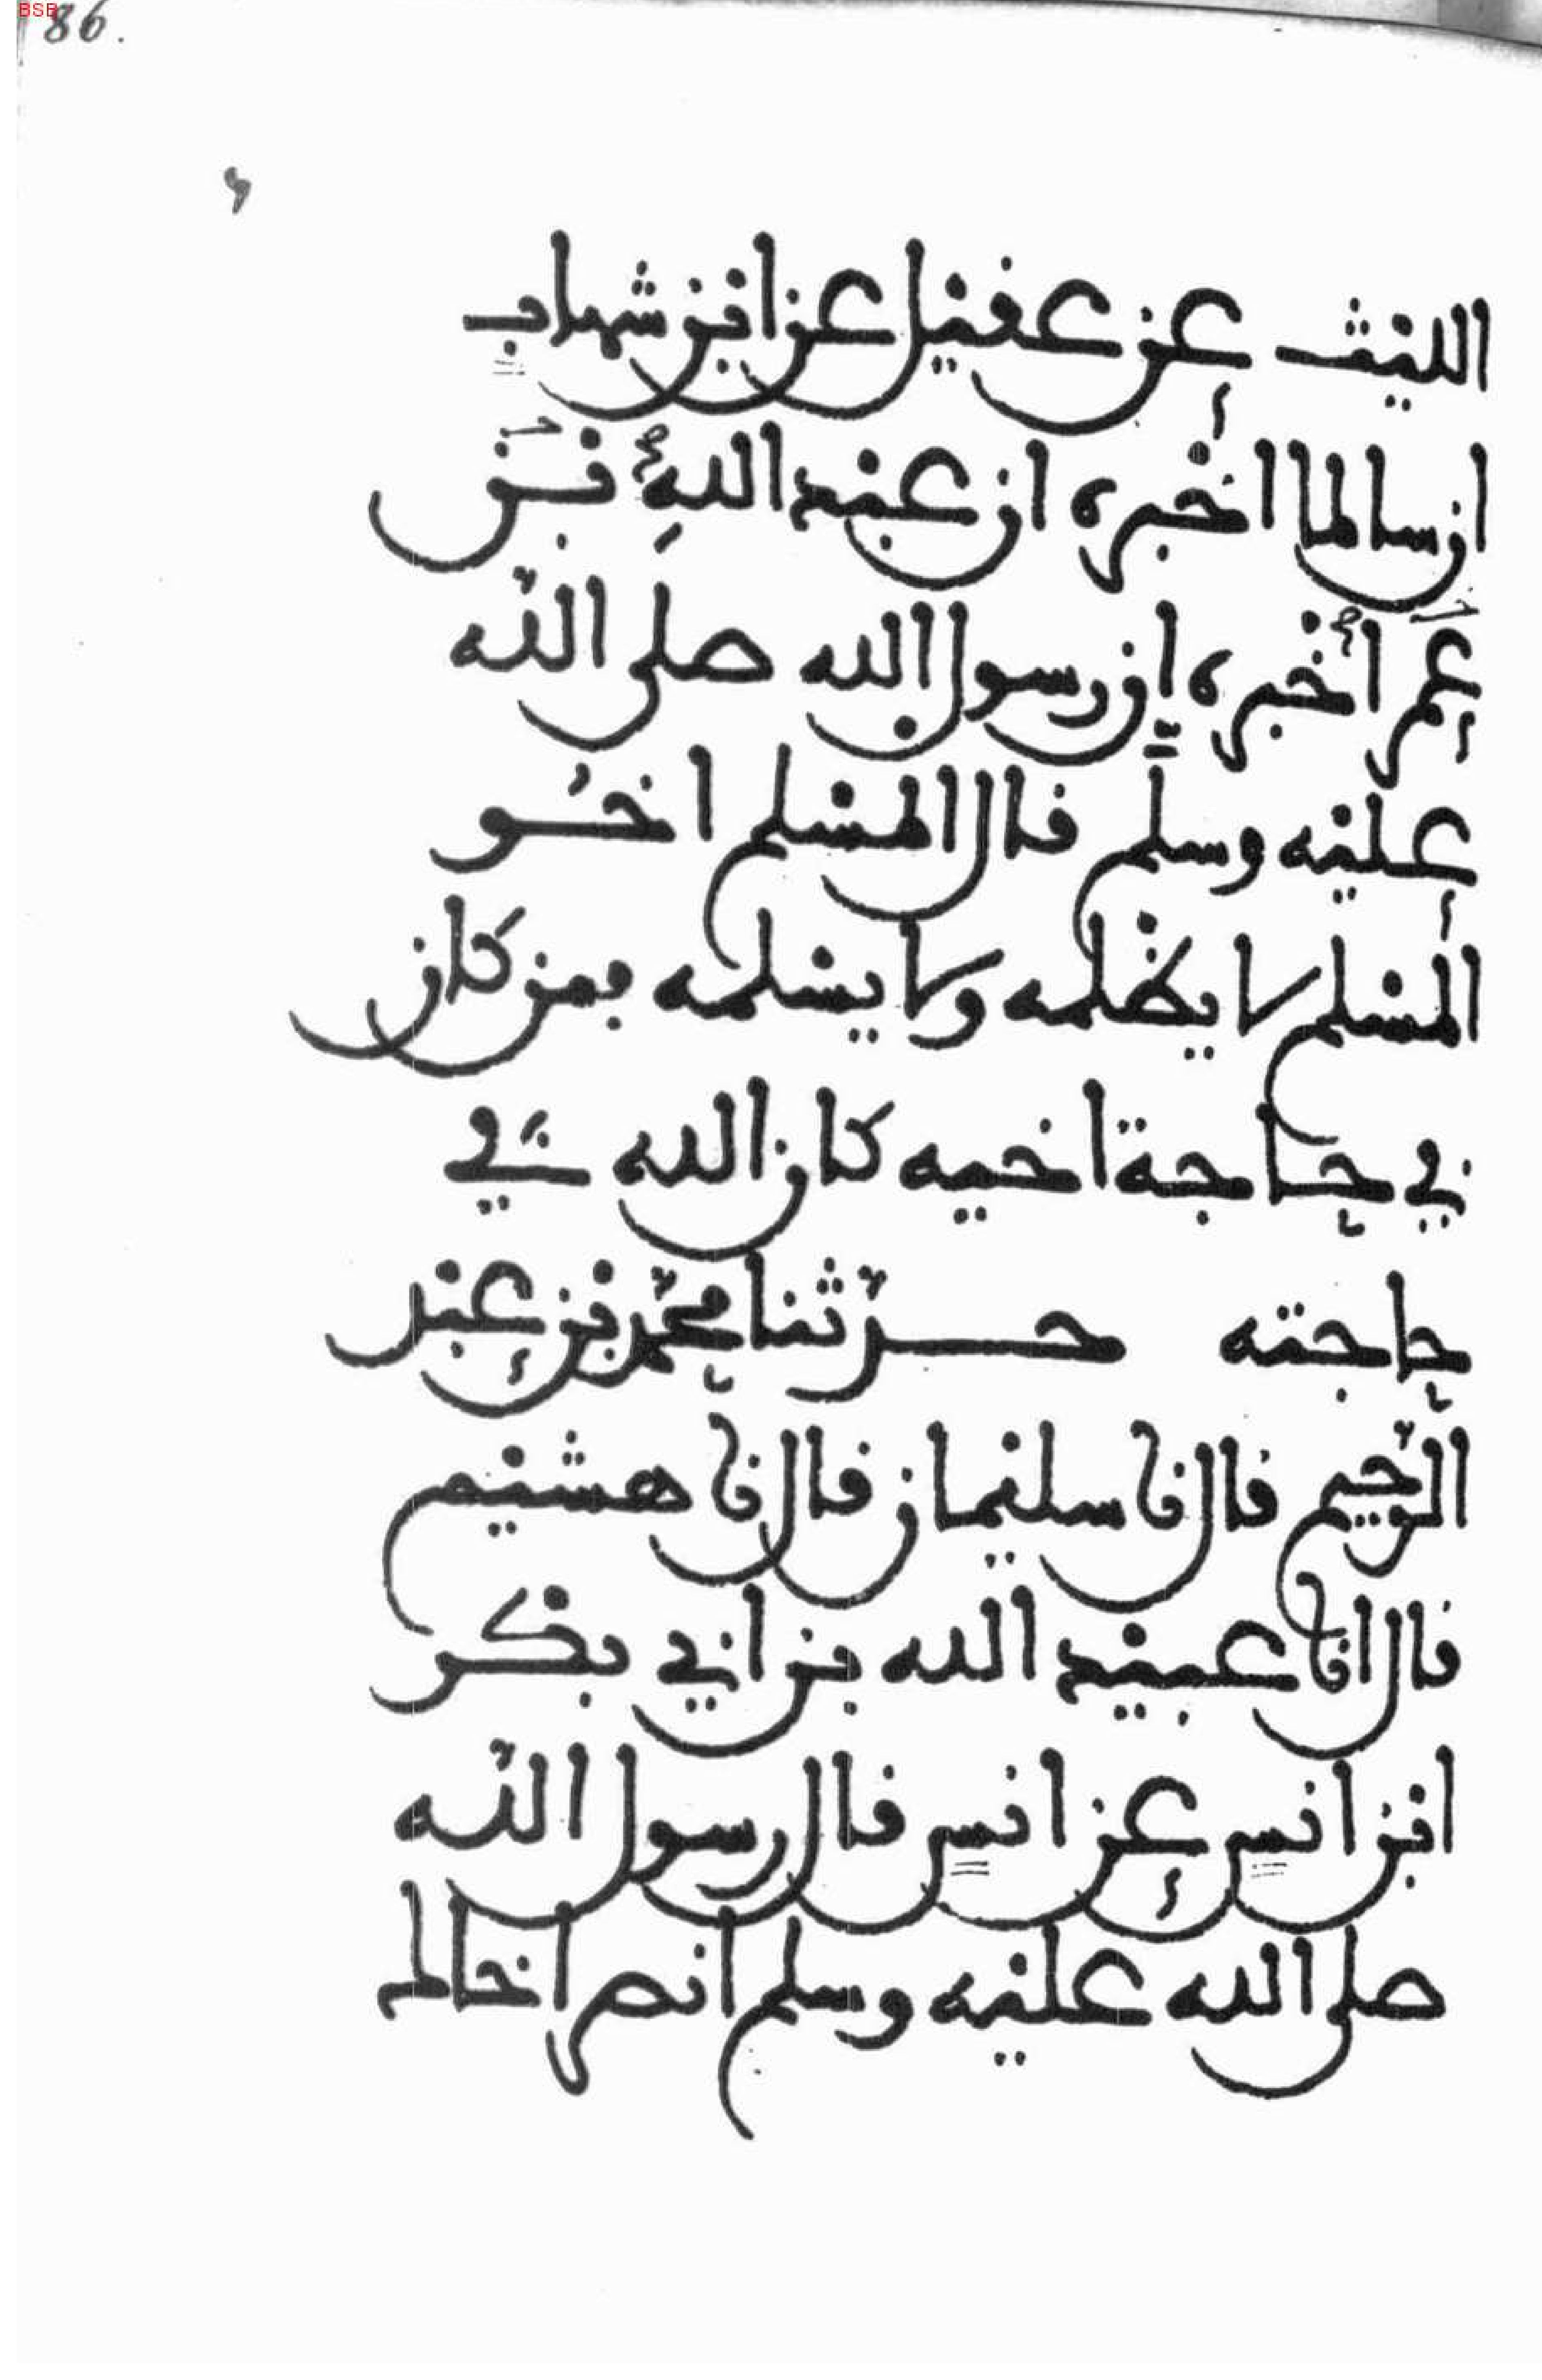 BSB
86.
الليث عن عقيل عن ابن شهاب
ان سالما اخبره ان عبد الله بن
عمر اخبره ان رسول الله صلى الله
عليه وسلم قال المسلم اخو
المسلم لا يظلمه ولا يسلمه فمن كان
في حاجة اخيه كان الله في
حاجته حدثنا محمد بن عبد
الرحيم قال نا سليمان قال نا هشيم
قال انا عبيد الله بن ابي بكر
ابن انس عن انس قال رسول الله
صلى الله عليه وسلم انصر اخاك